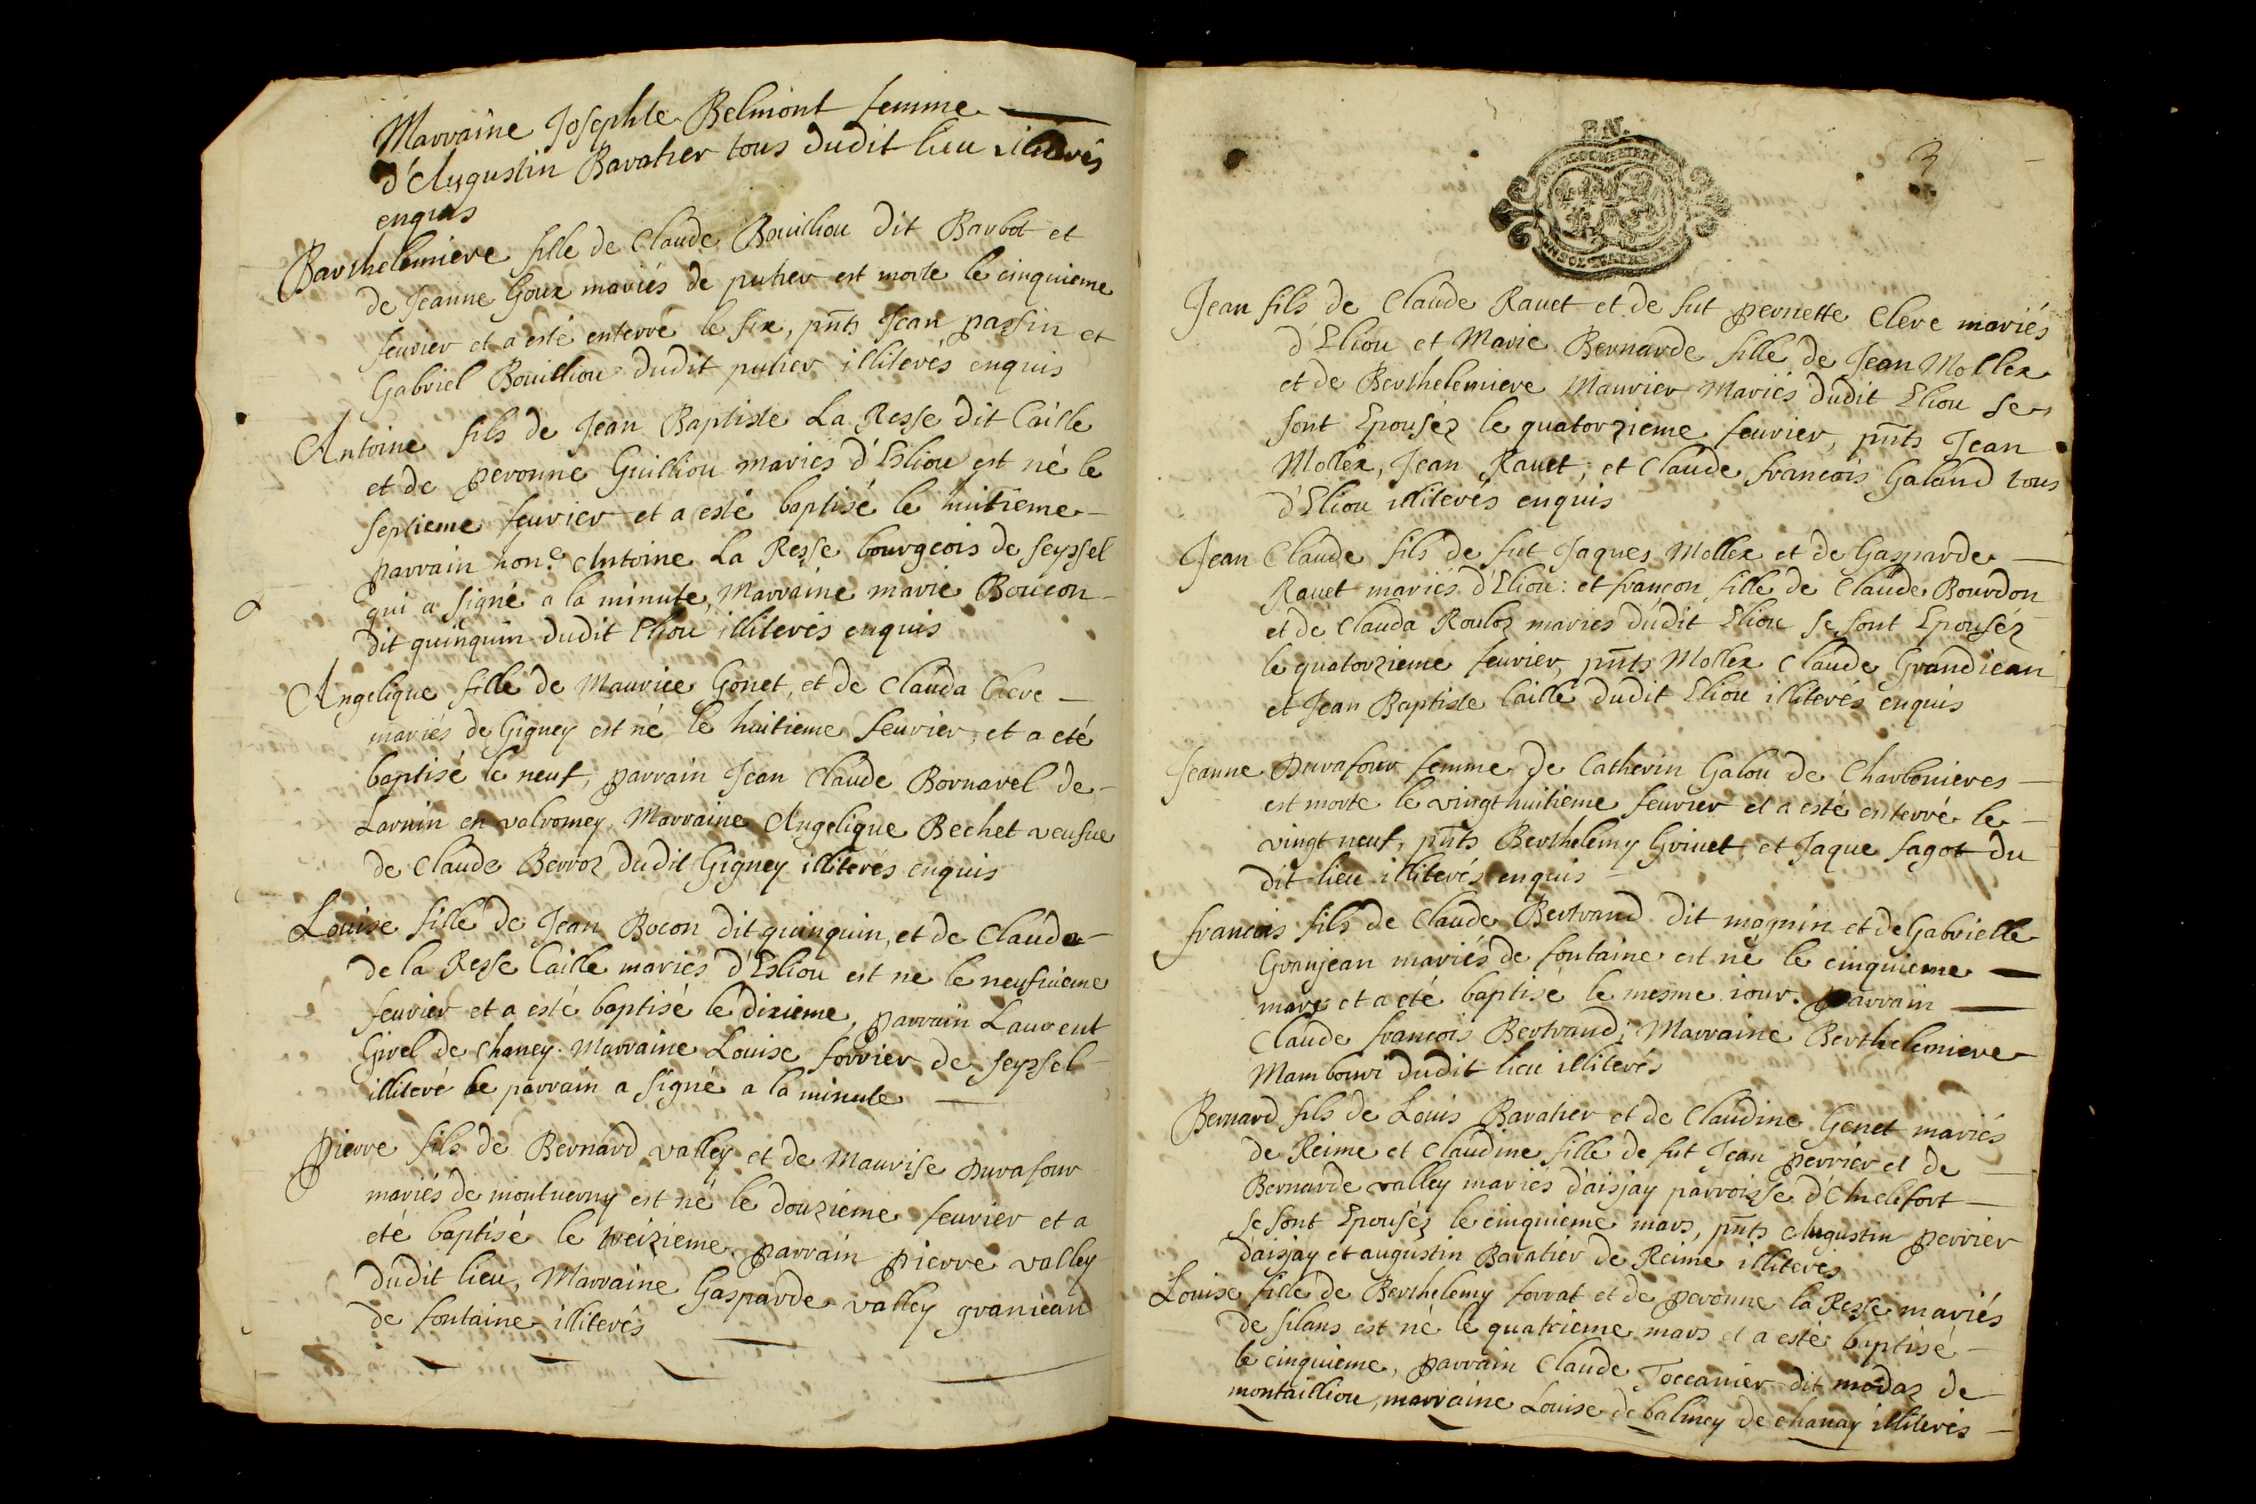 Marraine Josephte Belmont femme
d'Augustin Baratier tous dudit lieu illiterés
enquis
Barthelemiere fille de Claude Bouilliou dit Barbot et
de Jeanne Goux mariés de puthier est morte le cinquieme
feurier et a esté enterré le six, pnts Jean passin et
Gabriel Bouilliou dudit puthier illiterés enquis
Antoine fils de Jean Baptiste La Resse dit Caille
et de peronne Guilliou mariés d'Esliou est né le
septieme feurier et a esté baptisé le huitieme
parrain hon.e Antoine La Resse bourgeois de seyssel
qui a signé a la minute, Marraine marie Boucon
dit quinquin dudit Eliou illiterés enquis
Angelique fille de Maurice Gonet, et de Clauda Clere
mariés de Gigney est né le huitieme feurier, et a eté
baptisé le neuf, parrain Jean Claude Bornarel de
Laruin en valromey, Marraine Angelique Bechet veufue
de Claude Berroz dudit Gigney illiterés enquis
Louise fille de Jean Bocon dit quinquin, et de Clauda
de la Resse Caille mariés d'Esliou est né le neufuieme
feurier et a esté baptisé le dixieme, parrain Laurent
Girel de Chaney. Marraine Louise forrier de seyssel
illiteré le parrain a signé a la minute
pierre fils de Bernard valley et de Maurise Durafour
mariés de montuerny est né le douzieme feurier et a
eté baptisé le treizieme parrain pierre valley
dudit lieu, Marraine Gasparde valley granjean
de fontaine illiterés
3
Jean fils de Claude Rauet et de fut pernette Clere mariés
d'Eliou et Marie Bernarde fille de Jean Mollex
et de Berthelemiere Maurier Mariés dudit Eliou se
sont Epouséz le quatorzieme feurier, pnts Jean
Mollex, Jean Rauet, et Claude francois Galand tous
d'Eliou illiterés enquis
Jean Claude fils de fut Jaques Mollex et de Gasparde
Rauet mariés d'Eliou: et francon fille de Claude Bourdon
et de Clauda Rouloz mariés dudit Eliou se sont Epouséz
le quatorzieme feurier, pnts Mollex Claude Grandjean
et Jean Baptiste Caille dudit Eliou illiterés enquis
Jeanne Durafour femme de Catherin Galou de Charbonieres
est morte le vingt huitieme feurier et a esté enterré le
vingt neuf, pnts Berthelemy Griuet, et Jaque fagot du
dit lieu illiterés enquis
francois fils de Claude Bertrand dit magnin et de Gabrielle
Granjean mariés de fontaine est né le cinquieme
mars et a eté baptisé le mesme iour. parrain
Claude francois Bertrand, Marraine Berthelemiere
Mambouri dudit lieu illiterés
Bernard fils de Louis Baratier et de Claudine Genet mariés
de Reime et Claudine fille de fut Jean perrier et de
Bernarde valley mariés d'aisjay parroisse d'Chelifort
se sont Epouséz le cinquieme mars, pnts Augustin perrier
d'aisjay et augustin Baratier de Reime illiterés
Louise fille de Berthelemy forrat et de peronne la Resse mariés
de silans est né le quatrieme mars et a esté baptisé
le cinquieme, parrain Claude Toccanier dit modaz de
montailliou, marraine Louise de balmey de chanay illiterés